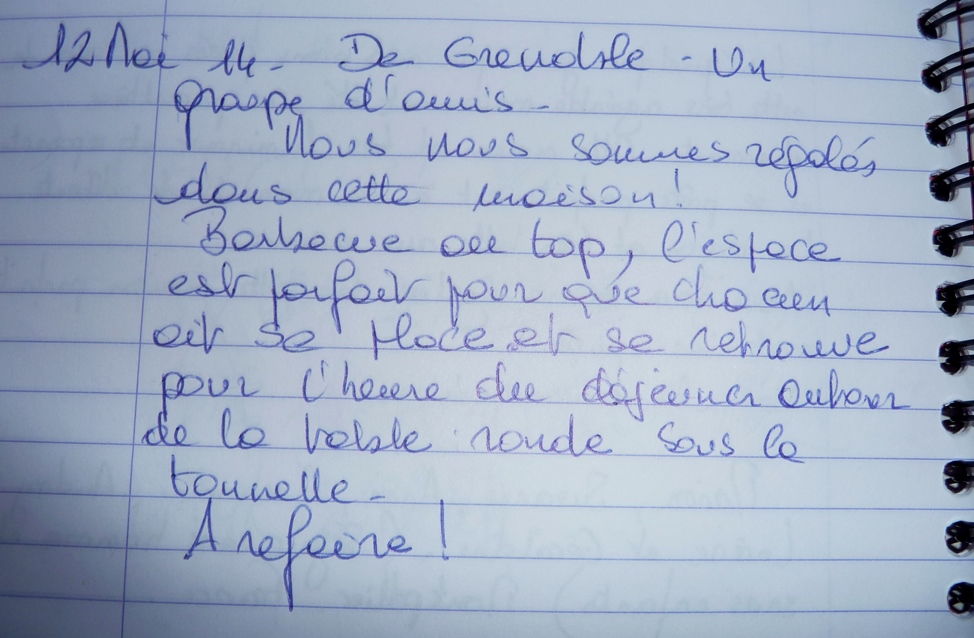 12 Mai 14 - De Grenoble - Un
groupe d'amis -
Nous nous sommes régalés
dans cette maison !
Barbecue au top, l'espace
est parfait pour que chacun
ait sa place et se retrouve
pour l'heure du déjeuner autour
de la table ronde sous la
tonnelle -
A refaire !